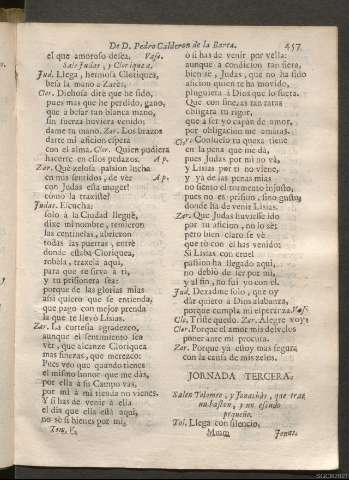 De D. Pedro Calderon de la Barca. 457
el que amoroso desea. Vase.
Sale Judas, y Cloriquea.
Jud. Llega, hermosa Cloriquea,
besa la mano a Zarès.
Clor. Dichosa dirè que he sido,
pues mas que he perdido, gano,
que à besar tan blanca mano,
sin fuerza huviera venido:
dame tu mano. Zar. Los brazos
darte mi aficion espera
con el alma. Clor. Quien pudiera
hacerte en ellos pedazos. Ap.
Zar. Què zelosa passion lucha
en mis sentidos, de ver Ap.
con Judas esta muger!
còmo la traxiste?
Judas. Escucha:
solo à la Ciudad lleguè,
dixe mi nombre, temieron
las centinelas, abrieron
todas las puertas, entrè
donde estaba Cloriquea,
robèla, traxela aqui,
para que te sirva à ti,
y tu prisionera sea:
porque de las glorias mias
asi quiero que se entienda,
que pago con mejor prenda
la que te llevò Lisias.
Zar. La cortesia agradezco,
aunque el sentimiento
ver, que alcanze Cloriquea
mas finezas, que merezco:
Pues veo que quando tienes
el mismo honor que me dàs,
por ella à su Campo vàs,
por mi à mi tienda no vienes.
Y si has de venir à ella
el dia que ella està aqui,
no sè si bienes por mi,
Tom. V.
ò si has de venir por vella:
aunque à condicion tan fiera,
bien sè, Judas, que no ha sido
aficion quien te ha movido,
pluguiera à Dios que lo fuera.
Que con finezas tan raras
obligara tu rigor,
que à ser yo capàz de amor,
por obligacion me amàras.
Clor. Consuelo tu quexa tiene
en la pena que me dà,
pues Judas por mi no và,
y Lisias por ti no viene,
y ya de las penas mias
no siento el tormento injusto,
pues no es prision, sino gusto
donde ha de venir Lisias.
Zar. Que Judas huviesse ido
por tu aficion, no lo sè;
pero bien claro se vè
que tù con el has venido:
Si Lisias con cruel
passion ha llegado aqui,
no debiò de ser por mi,
y al fin, no fui yo con el.
Jud. Dexadme solo, que oy
dàr quiero à Dios alabanza,
porque cumpla mi esperanza. Vase
Clo. Triste quedo. Zar. Alegre voy:
Clor. Porque el amor mis desvelos
poner ante mi procura.
Zar. Porque yà estoy mas segura
con la causa de mis zelos.
JORNADA TERCERA.
Salen Tolomeo, y Jonathàs, que trae
un baston, y un escudo
pequeño.
Tol. Llega con silencio,
Mmm Jonat.